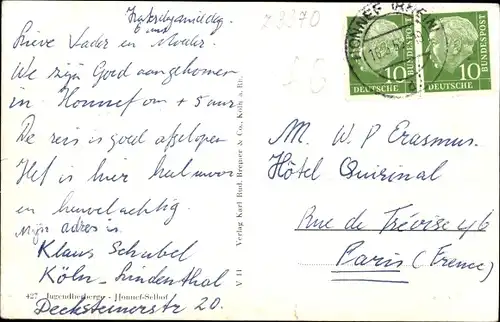 Zaterdagmiddag
Lieve Vader en Moeder.
We zijn Goed aangekomen
in Honnef om ± 5 uur
De reis is goed afgelopen
Het is hier heel mooi
en heuvelachtig.
Mijn adres is.
Klaus Schubel
Köln-Lindenthal
427 Jugendherberge - Honnef-Selhof
Decksteinerstr 20.
V 11 Verlag Karl Rud. Bremer & Co., Köln a. Rh.
Z 3370
HONNEF (RHEIN)
10
DEUTSCHE
BUNDESPOST
10
DEUTSCHE
BUNDESPOST
M. W P Erasmus.
Hôtel Quirinal
Rue de Trévise 4/6
Paris (France)